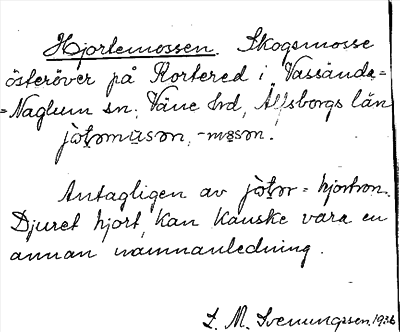 Hjortemossen. Skogsmosse
österöver på Kortered i Vassända=
=Naglum sn; Väne hd, Älfsborgs län
Antagligen av = hjortron.
Djuret hjort, kan kanske vara en
annan namnanledning.
S. M. Svenungssen, 1936